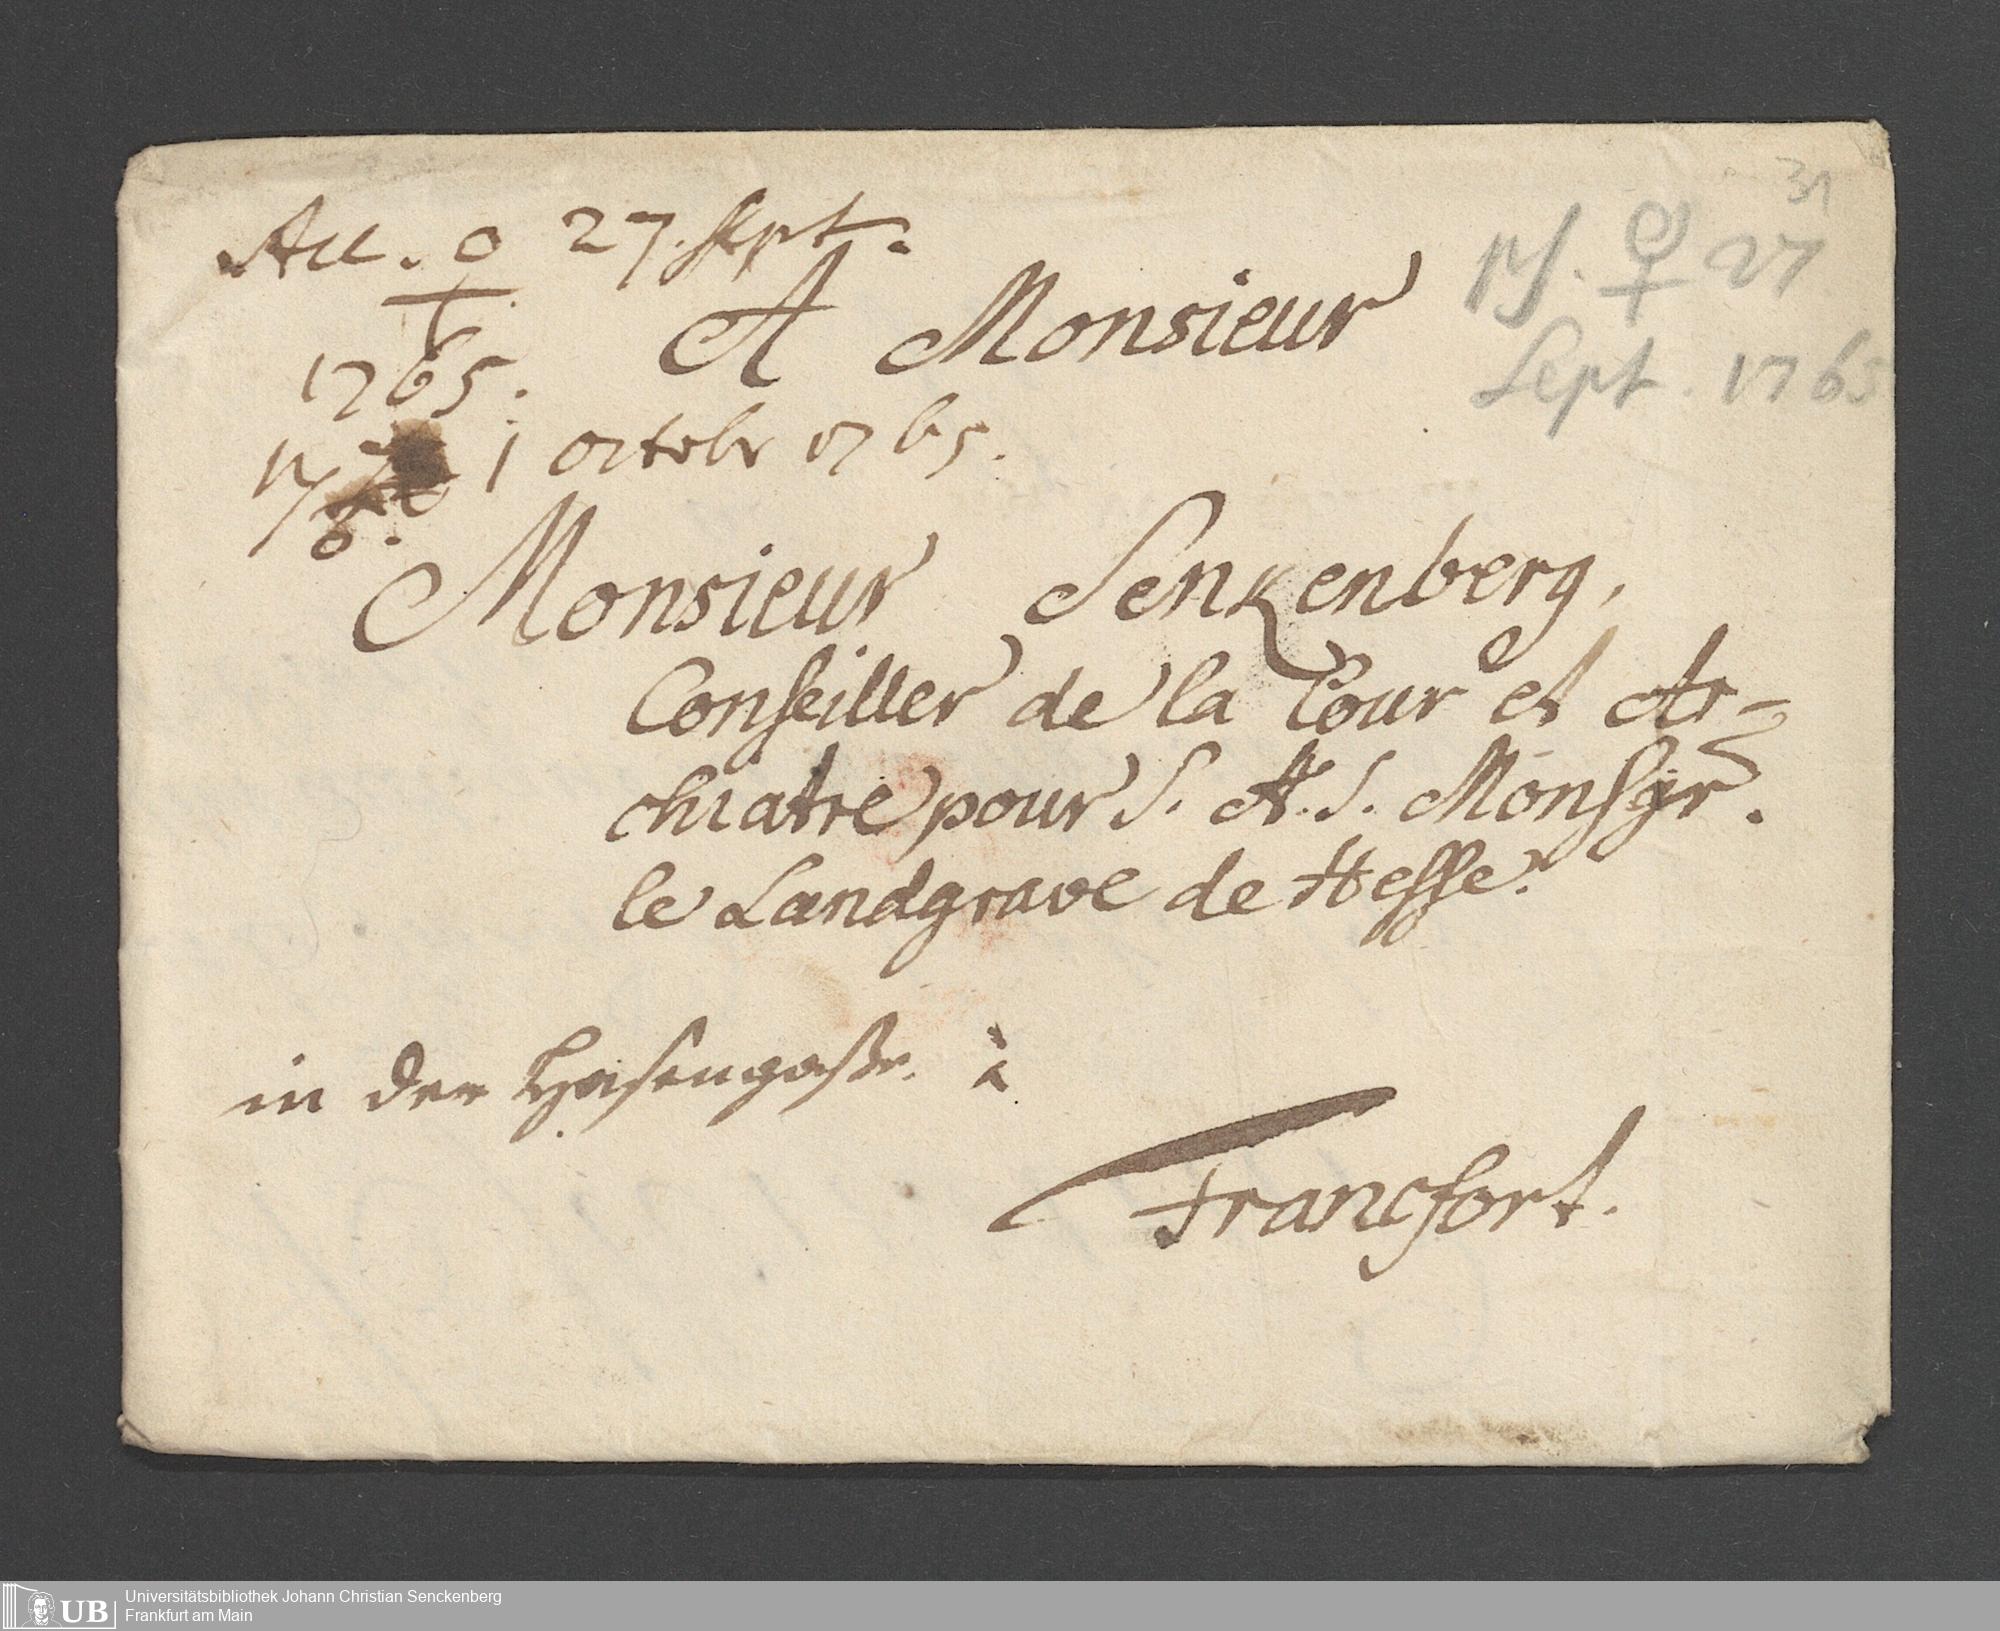 Acc. ♀ 27. sept.
1765.
31
ps. ♀ 27
Sept. 1765
A Monsieur
1 octobr 1765.
Monsieur Senkenberg,
Conseiller de la Cour et Ar-
chiatre pour S. A. S. Monsgr.
le Landgrave de Hesse.
in der Hasengaße. à
Francfort.
UB Universitätsbibliothek Johann Christian Senckenberg
Frankfurt am Main